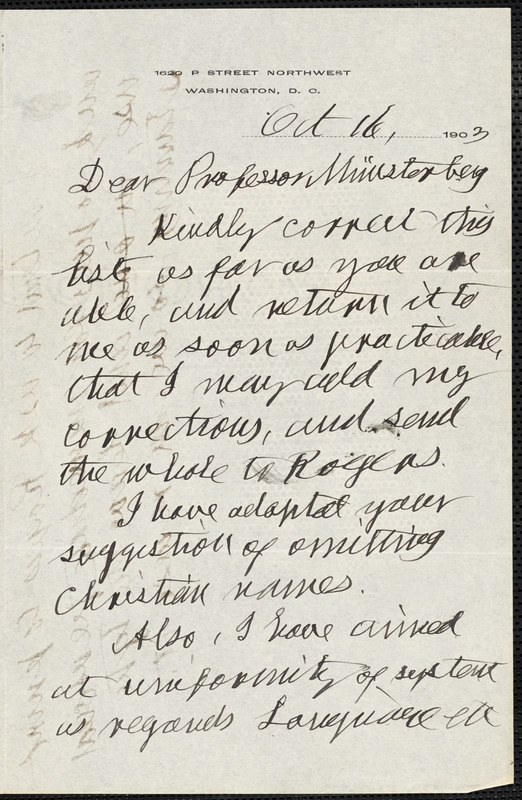 1620 P STREET NORTHWEST
WASHINGTON, D. C.
Oct 16, 1903
Dear Professor Münsterberg
Kindly correct this
list as far as you are
able, and return it to
me as soon as practicable,
that I may add my
corrections, and send
the whole to Rogers.
I have adopted your
suggestion of omitting
Christian names.
Also, I have aimed
at uniformity of system
as regards Language etc